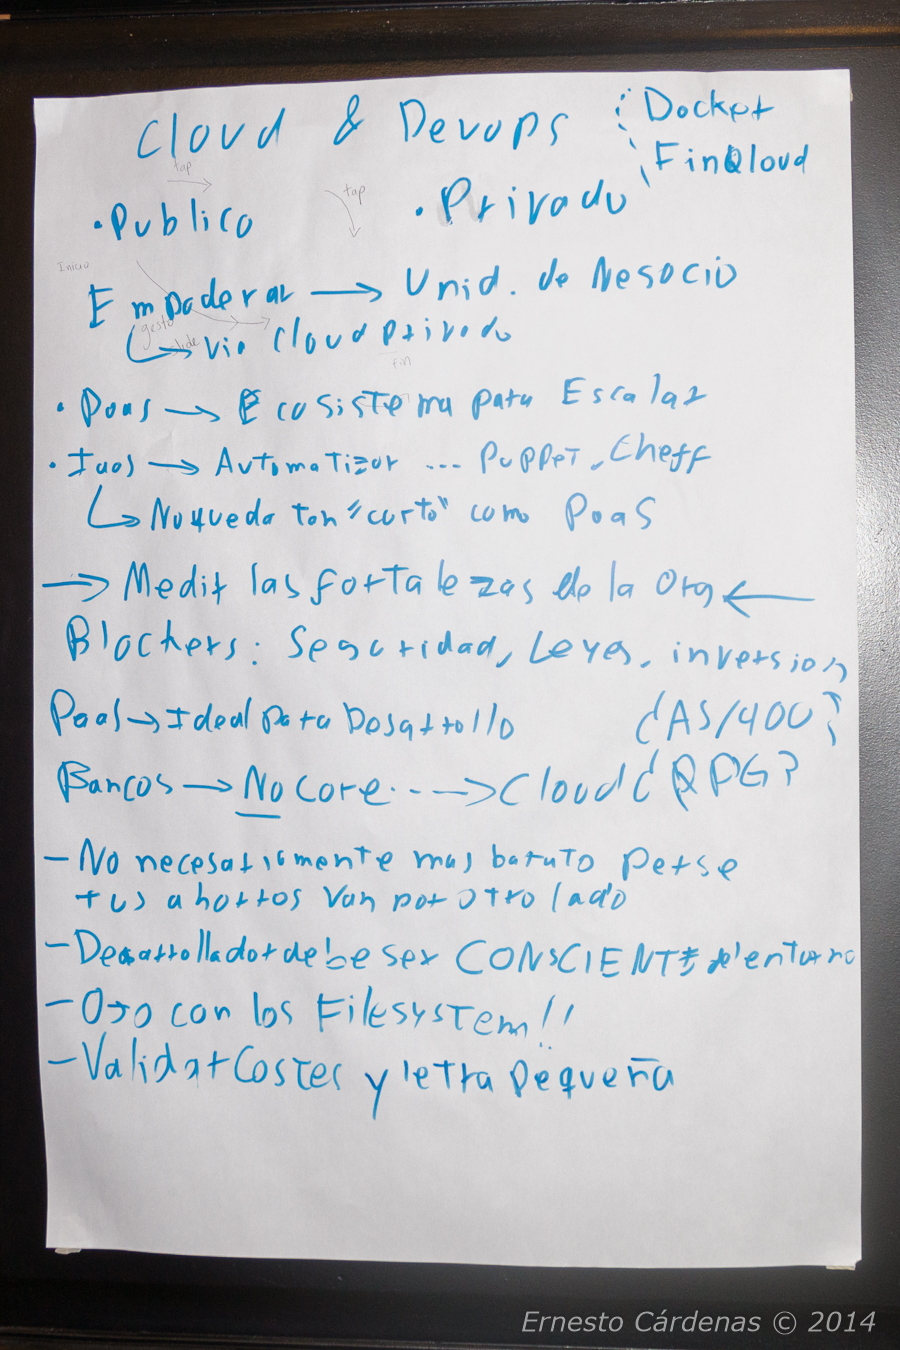 Cloud & Devops
Docker
FinQloud
• Publico
• Privado
tap
tap
Inicio
Empoderar → Unid. de Negocio
gesto
slide
↳ Via Cloud Privado
fin
• Paas → Ecosistema para Escalar
• Iaas → Automatizar ... Puppet, Cheff
↳ No queda tan "corto" como PaaS
→ Medir las fortalezas de la Org ←
Blockers: Seguridad, Leyes, inversion
Paas → Ideal para Desarrollo
¿AS/400?
Bancos → No Core ---> Cloud ¿RPG?
- No necesariamente mas barato per se
tus ahorros van por otro lado
- Desarrollador debe ser CONSCIENTE d'entorno
- Ojo con los Filesystem!!
- Validar Costes y letra pequeña
Ernesto Cárdenas © 2014